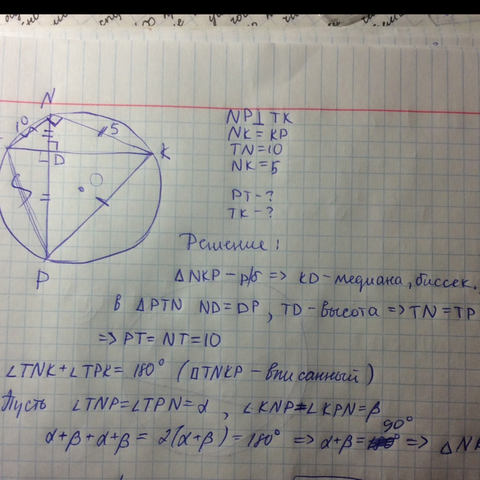 N
10
5
D
K
P
NP⊥TK
NK=KP
TN=10
NK=5
PT-?
TK-?
Решение:
△NKP-р/б => KD-медиана, биссек.
в △PTN ND=DP, TD-высота => TN=TP
=> PT=NT=10
∠TNK+∠TPK=180° (□TNKP-вписанный)
Пусть ∠TNP=∠TPN=α, ∠KNP=∠KPN=β
α+β+α+β=2(α+β)=180° => α+β=90° => △N